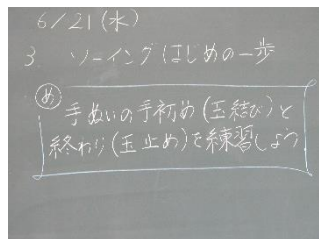 6/21(水)
3. ソーイングはじめの一歩
め
手ぬいの手初め(玉結び)と
終わり(玉止め)を練習しよう